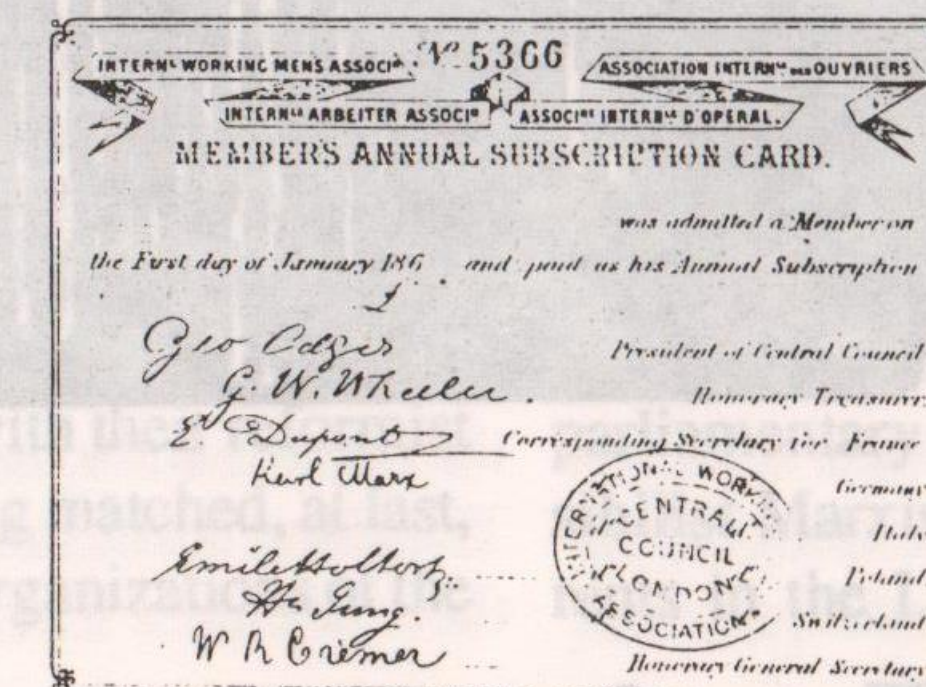 Nº 5366
INTERNL WORKING MEN'S ASSOCIN
ASSOCIATION INTERNLE DES OUVRIERS
INTERNLE ARBEITER ASSOCIN
ASSOCINE INTERNLE D'OPERAI.
MEMBER'S ANNUAL SUBSCRIPTION CARD.
was admitted a Member on
the First day of January 186 and paid as his Annual Subscription
£
Geo Odger President of Central Council
G. W. Wheeler. Honorary Treasurer.
E. Dupont Corresponding Secretary for France
Karl Marx Germany
Italy
Emile Holtorp Poland
H. Jung. Switzerland
W R Cremer Honorary General Secretary
INTERNATIONAL WORKING
CENTRAL
COUNCIL
LONDON
ASSOCIATION
parliamentary
matched, at last,
the L